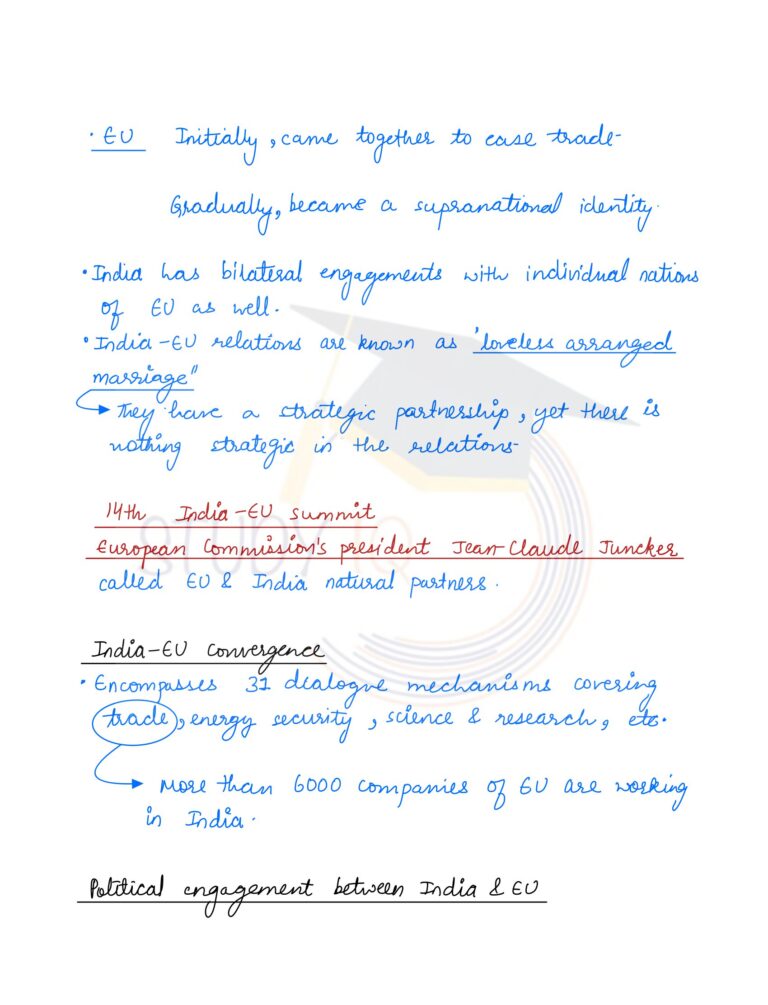 • EU Initially, came together to ease trade-
Gradually, became a supranational identity.
• India has bilateral engagements with individual nations
of EU as well.
• India-EU relations are known as 'loveless arranged
marriage"
They have a strategic partnership, yet there is
nothing strategic in the relations-
14th India-EU summit
European Commission's president Jean-Claude Juncker
called EU & India natural partners.
India-EU convergence
• Encompasses 31 dialogue mechanisms covering
trade, energy security, science & research, etc.
More than 6000 companies of EU are working
in India.
Political engagement between India & EU
STUDY IQ